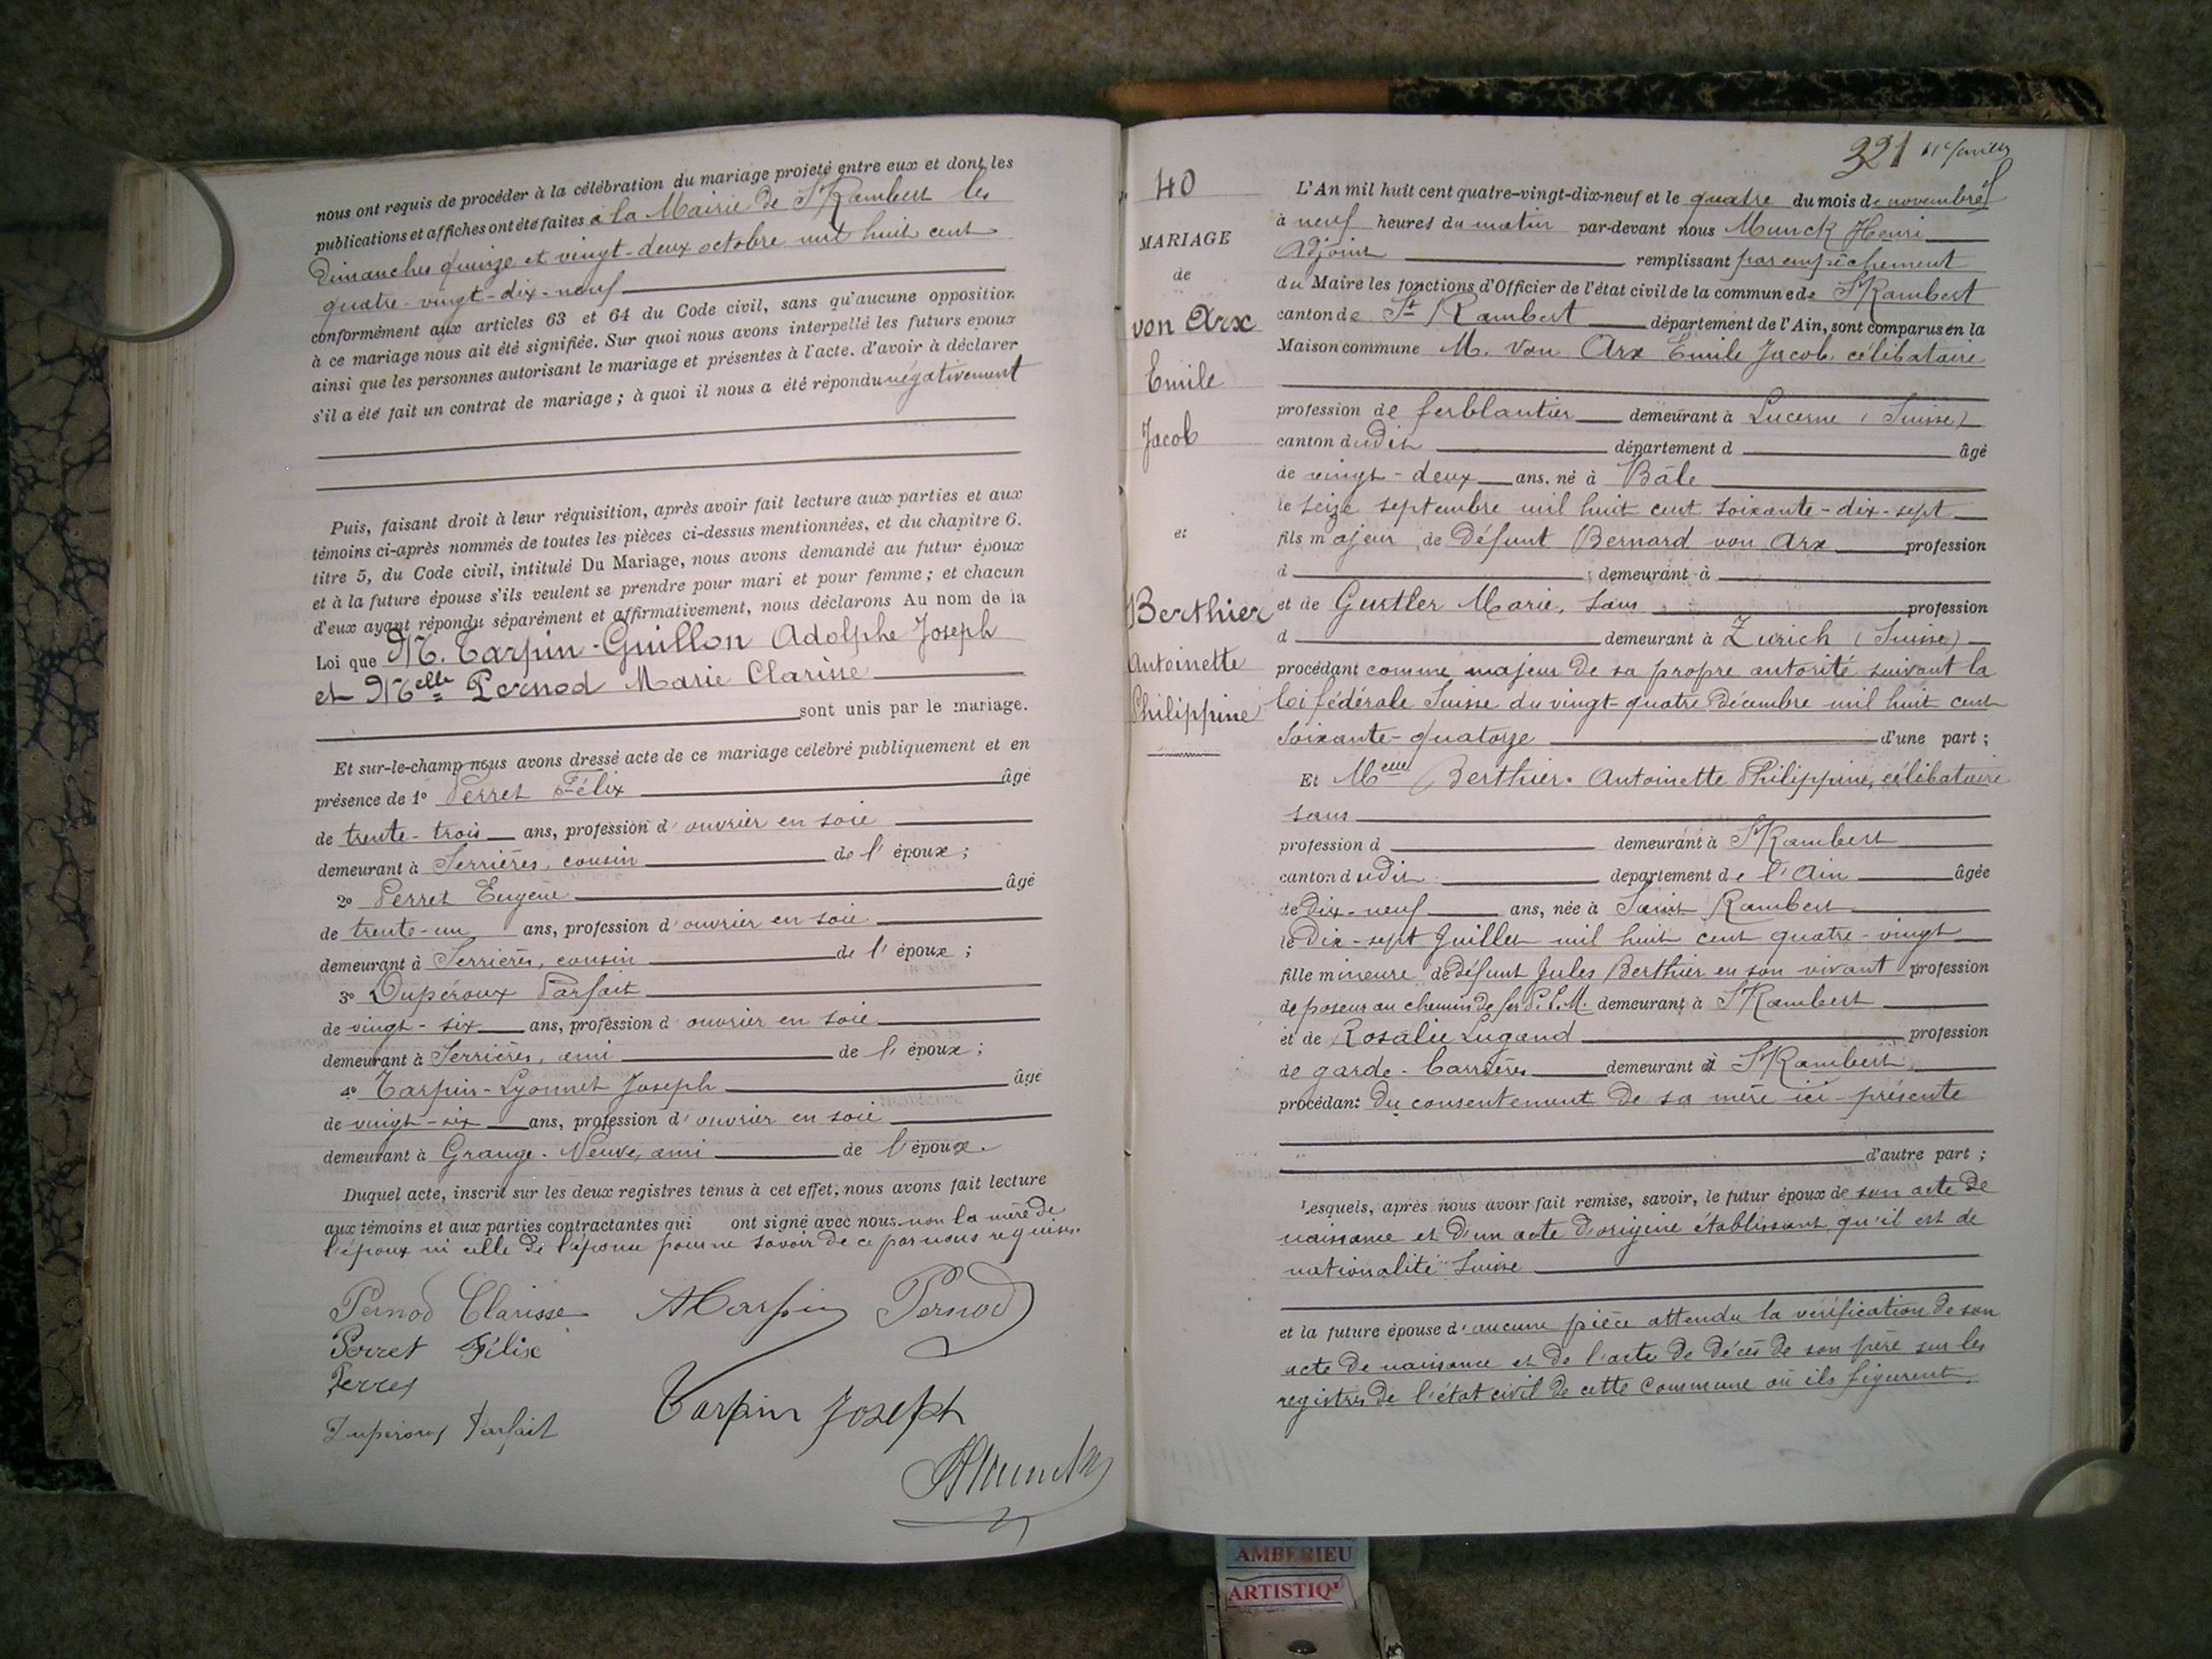 nous ont requis de procéder à la célébration du mariage projeté entre eux et dont les
publications et affiches ont été faites à la Mairie de St Rambert les
Dimanches quinze et vingt-deux octobre mil huit cent
quatre-vingt-dix-neuf
conformément aux articles 63 et 64 du Code civil, sans qu'aucune opposition
à ce mariage nous ait été signifiée. Sur quoi nous avons interpellé les futurs époux
ainsi que les personnes autorisant le mariage et présentes à l'acte. d'avoir à déclarer
s'il a été fait un contrat de mariage ; à quoi il nous a été répondu négativement
Puis, faisant droit à leur réquisition, après avoir fait lecture aux parties et aux
témoins ci-après nommés de toutes les pièces ci-dessus mentionnées, et du chapitre 6.
titre 5, du Code civil, intitulé Du Mariage, nous avons demandé au futur époux
et à la future épouse s'ils veulent se prendre pour mari et pour femme ; et chacun
d'eux ayant répondu séparément et affirmativement, nous déclarons Au nom de la
Loi que M. Tarpin-Guillon Adolphe Joseph
et Melle Pernod Marie Clarisse
sont unis par le mariage.
Et sur-le-champ nous avons dressé acte de ce mariage célébré publiquement et en
présence de 1° Perret Félix âgé
de trente-trois ans, profession d'ouvrier en soie
demeurant à Serrières, cousin de l'époux ;
2° Perret Eugène âgé
de trente-un ans, profession d'ouvrier en soie
demeurant à Serrières, cousin de l'époux ;
3° Dupéroux Parfait
de vingt-six ans, profession d'ouvrier en soie
demeurant à Serrières, ami de l'époux ;
4° Tarpin-Lyonnet Joseph âgé
de vingt-six ans, profession d'ouvrier en soie
demeurant à Grange-Neuve, ami de l'époux.
Duquel acte, inscrit sur les deux registres tenus à cet effet, nous avons fait lecture
aux témoins et aux parties contractantes qui ont signé avec nous non la mère de
l'époux ni celle de l'épouse pour ne savoir de ce par nous requises.
Pernod Clarisse A Tarpin Pernod
Perret Félix
Perret
Tarpin Joseph
Duperoux Parfait
HMunck
321
40
MARIAGE
de
von Arx
Emile
Jacob
et
Berthier
Antoinette
Philippine
L'An mil huit cent quatre-vingt-dix-neuf et le quatre du mois de novembre
à neuf heures du matin par-devant nous Munck Henri
Adjoint remplissant par empêchement
du Maire les fonctions d'Officier de l'état civil de la commune de St Rambert
canton de St Rambert département de l'Ain, sont comparus en la
Maison commune M. Von Arx Emile Jacob, célibataire
profession de ferblantier demeurant à Lucerne (Suisse)
canton dudit département d âgé
de vingt-deux ans. né à Bâle
le seize septembre mil huit cent soixante-dix-sept
fils majeur de Défunt Bernard von Arx profession
d demeurant à
et de Gurtler Marie, sans profession
d demeurant à Zurich (Suisse)
procédant comme majeur de sa propre autorité suivant la
loi fédérale Suisse du vingt-quatre Décembre mil huit cent
soixante-quatorze d'une part ;
Et Melle Berthier Antoinette Philippine, célibataire
sans
profession d demeurant à St Rambert
canton dudit département de l'Ain âgée
de Dix-neuf ans, née à Saint Rambert
le Dix-sept Juillet mil huit cent quatre-vingt
fille mineure de défunt Jules Berthier en son vivant profession
de poseur au chemin de fer P.L.M. demeurant à St Rambert
et de Rosalie Lugand profession
de garde-barrières demeurant à St Rambert
procédant du consentement de sa mère ici-présente
d'autre part ;
Lesquels, après nous avoir fait remise, savoir, le futur époux de son acte de
naissance et d'un acte d'origine établissant qu'il est de
nationalité Suisse
et la future épouse d'aucune pièce attendu la vérification de son
acte de naissance et de l'acte de décès de son père sur les
registres de l'état civil de cette Commune où ils figurent.
AMBERIEU
ARTISTIQ